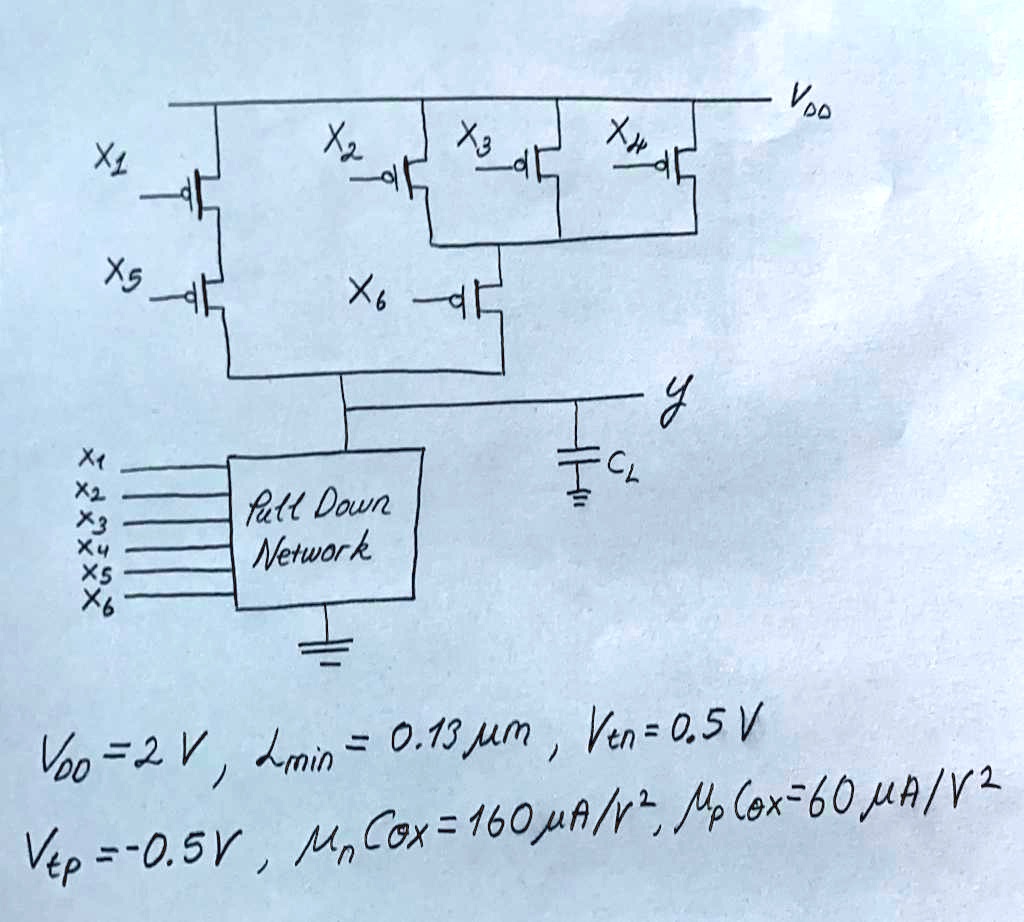 V_DD
X1
X2
X3
X4
X5
X6
y
C_L
X1
X2
X3
X4
X5
X6
Pull Down
Network
V_DD = 2 V, L_min = 0.13 μm, V_tn = 0.5 V
V_tp = -0.5V, μ_n Cox = 160 μA/V², μ_p Cox = 60 μA/V²